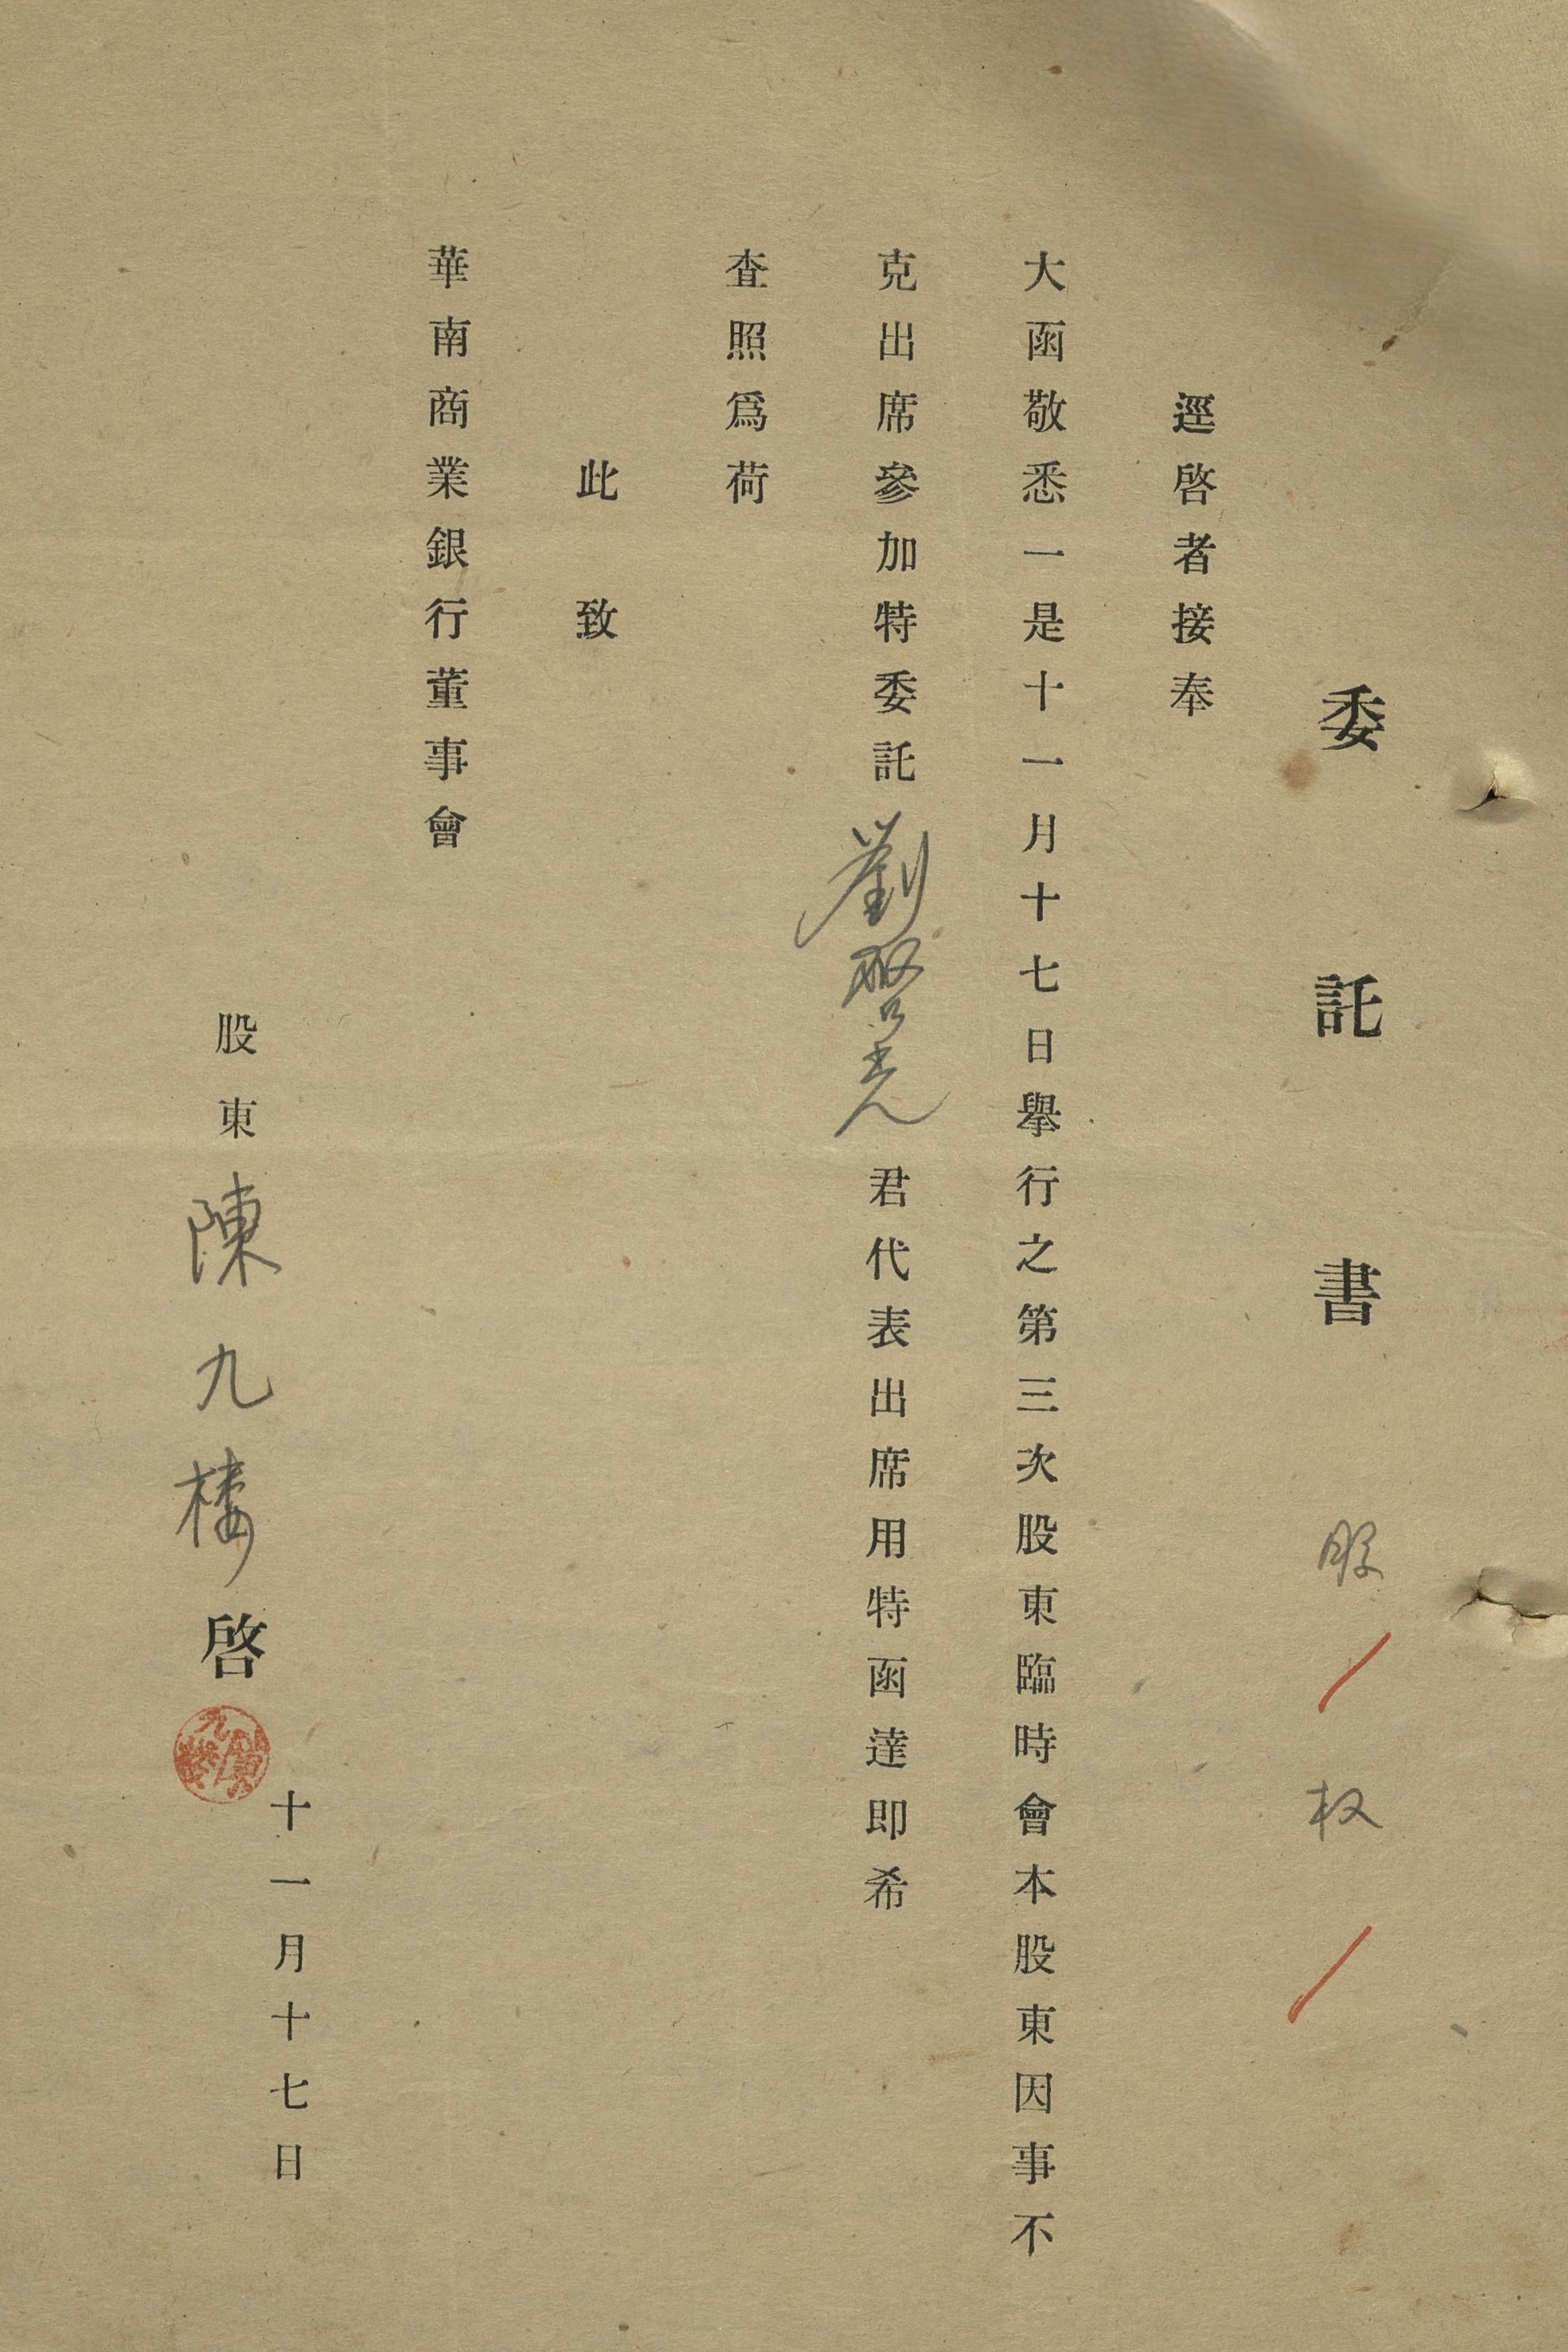 委託書 股 权
逕啓者接奉
大函敬悉一是十一月十七日舉行之第三次股東臨時會本股東因事不
克出席參加特委託劉啓光君代表出席用特函達即希
查照爲荷
此致
華南商業銀行董事會
十一月十七日
股東陳九樓啓